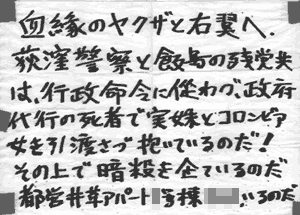 血縁のヤクザと右翼へ.
荻窪警察と飯島の残党共
は、行政命令に従わず、政府
代行の死者で実妹とコロンビア
女を引渡さず抱いているのだ!
その上で暗殺を企ているのだ
都営井草アパート 号棟 いるのだ